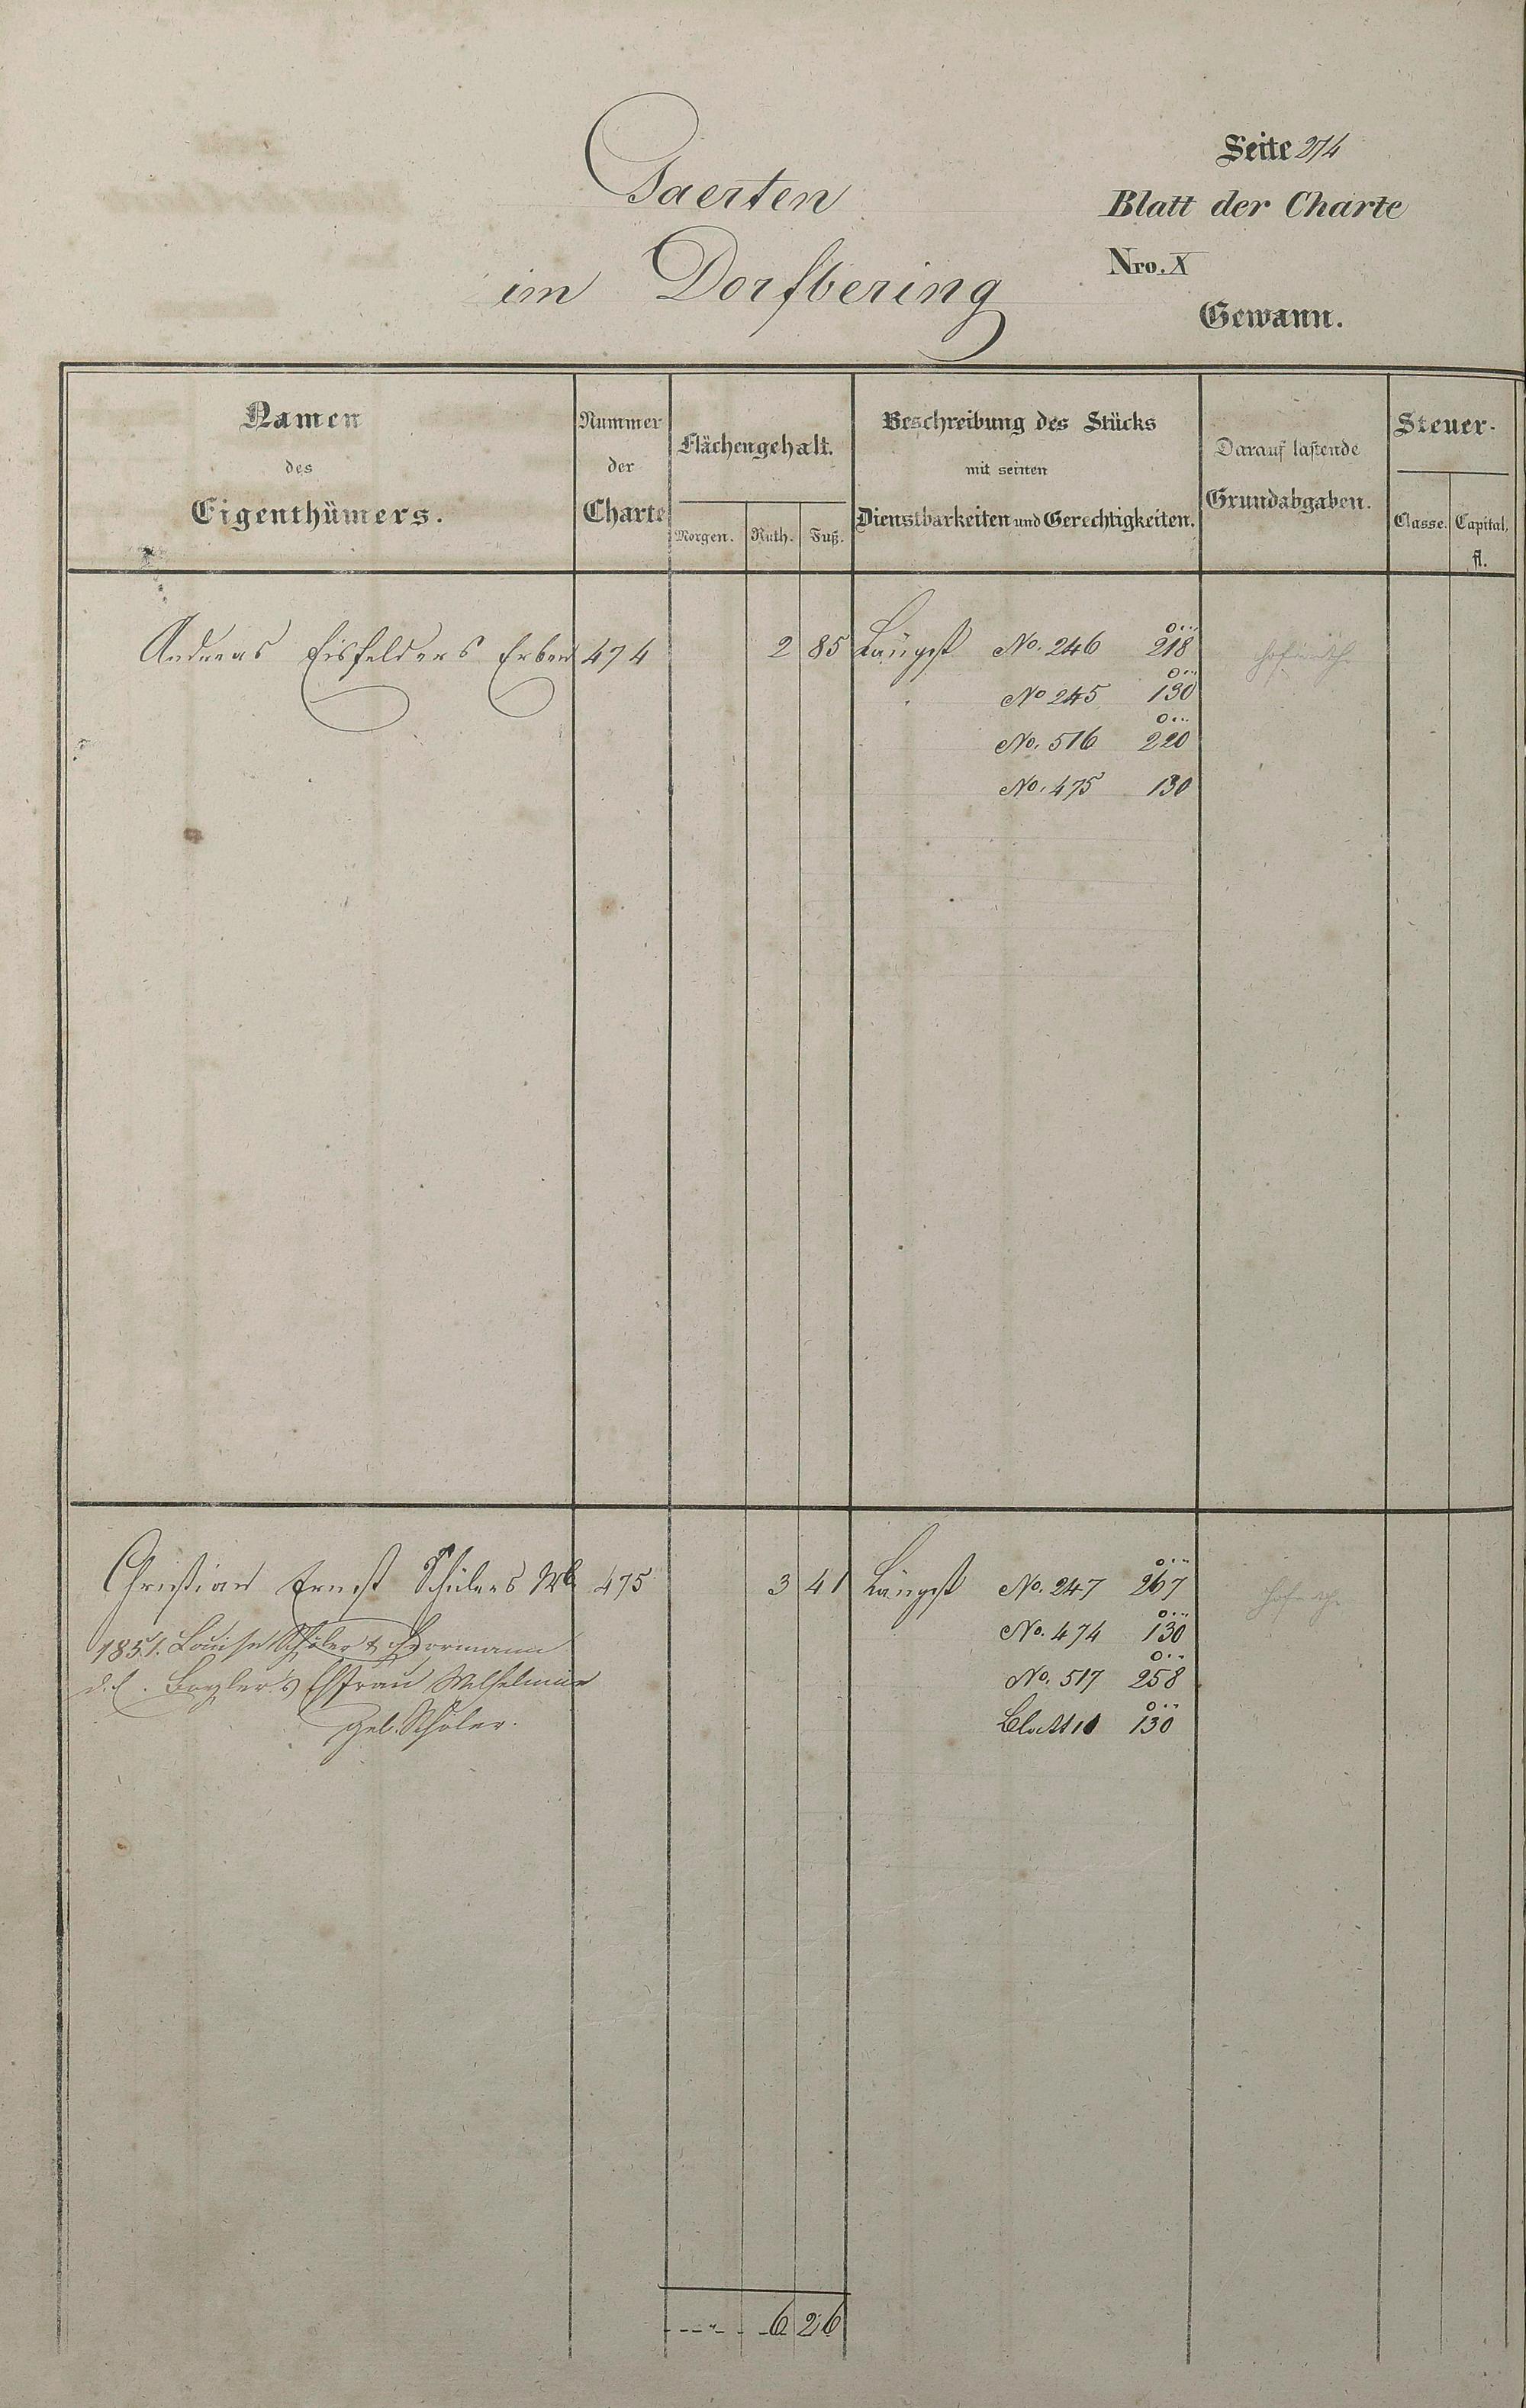 Seite 274
Gaerten
Blatt der Charte
im Dorfbering
Nro. X
Gewann.
Namen des Eigenthümers.
Nummer der Charte
Flächengehalt.
Morgen. Ruth. Fuß.
Beschreibung des Stücks mit seinen Dienstbarkeiten und Gerechtigkeiten.
Darauf lastende Grundabgaben.
Steuer-
Classe. Capital, fl.
Andreas Eisfelders Erben 474 2 85 Längst No. 246 218
No 245 130
No. 516 220
No. 475 130
Christian Ernst Schülers Wb 475 3 41 Längst No. 247 267
1851. Louise Schöler & No. 474 130
Ehfrau Wilhelmine No. 517 258
geb. Schöler. Blatt 10 130
6 26